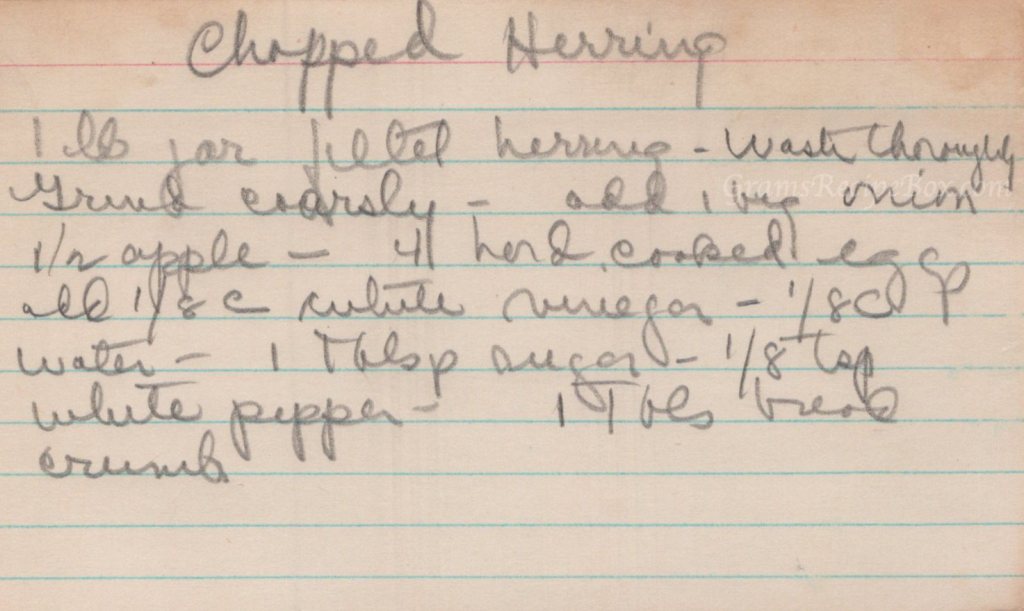 Chopped Herring
1 lb jar filet herring - Wash thoroughly
GramsRecipeBox.com
Grind coarsly - add 1 big onion
1/2 apple - 4 hard cooked eggs
add 1/8 c white vinegar - 1/8 c
water - 1 Tblsp sugar - 1/8 tsp
white pepper - 1 Tbls bread
crumb